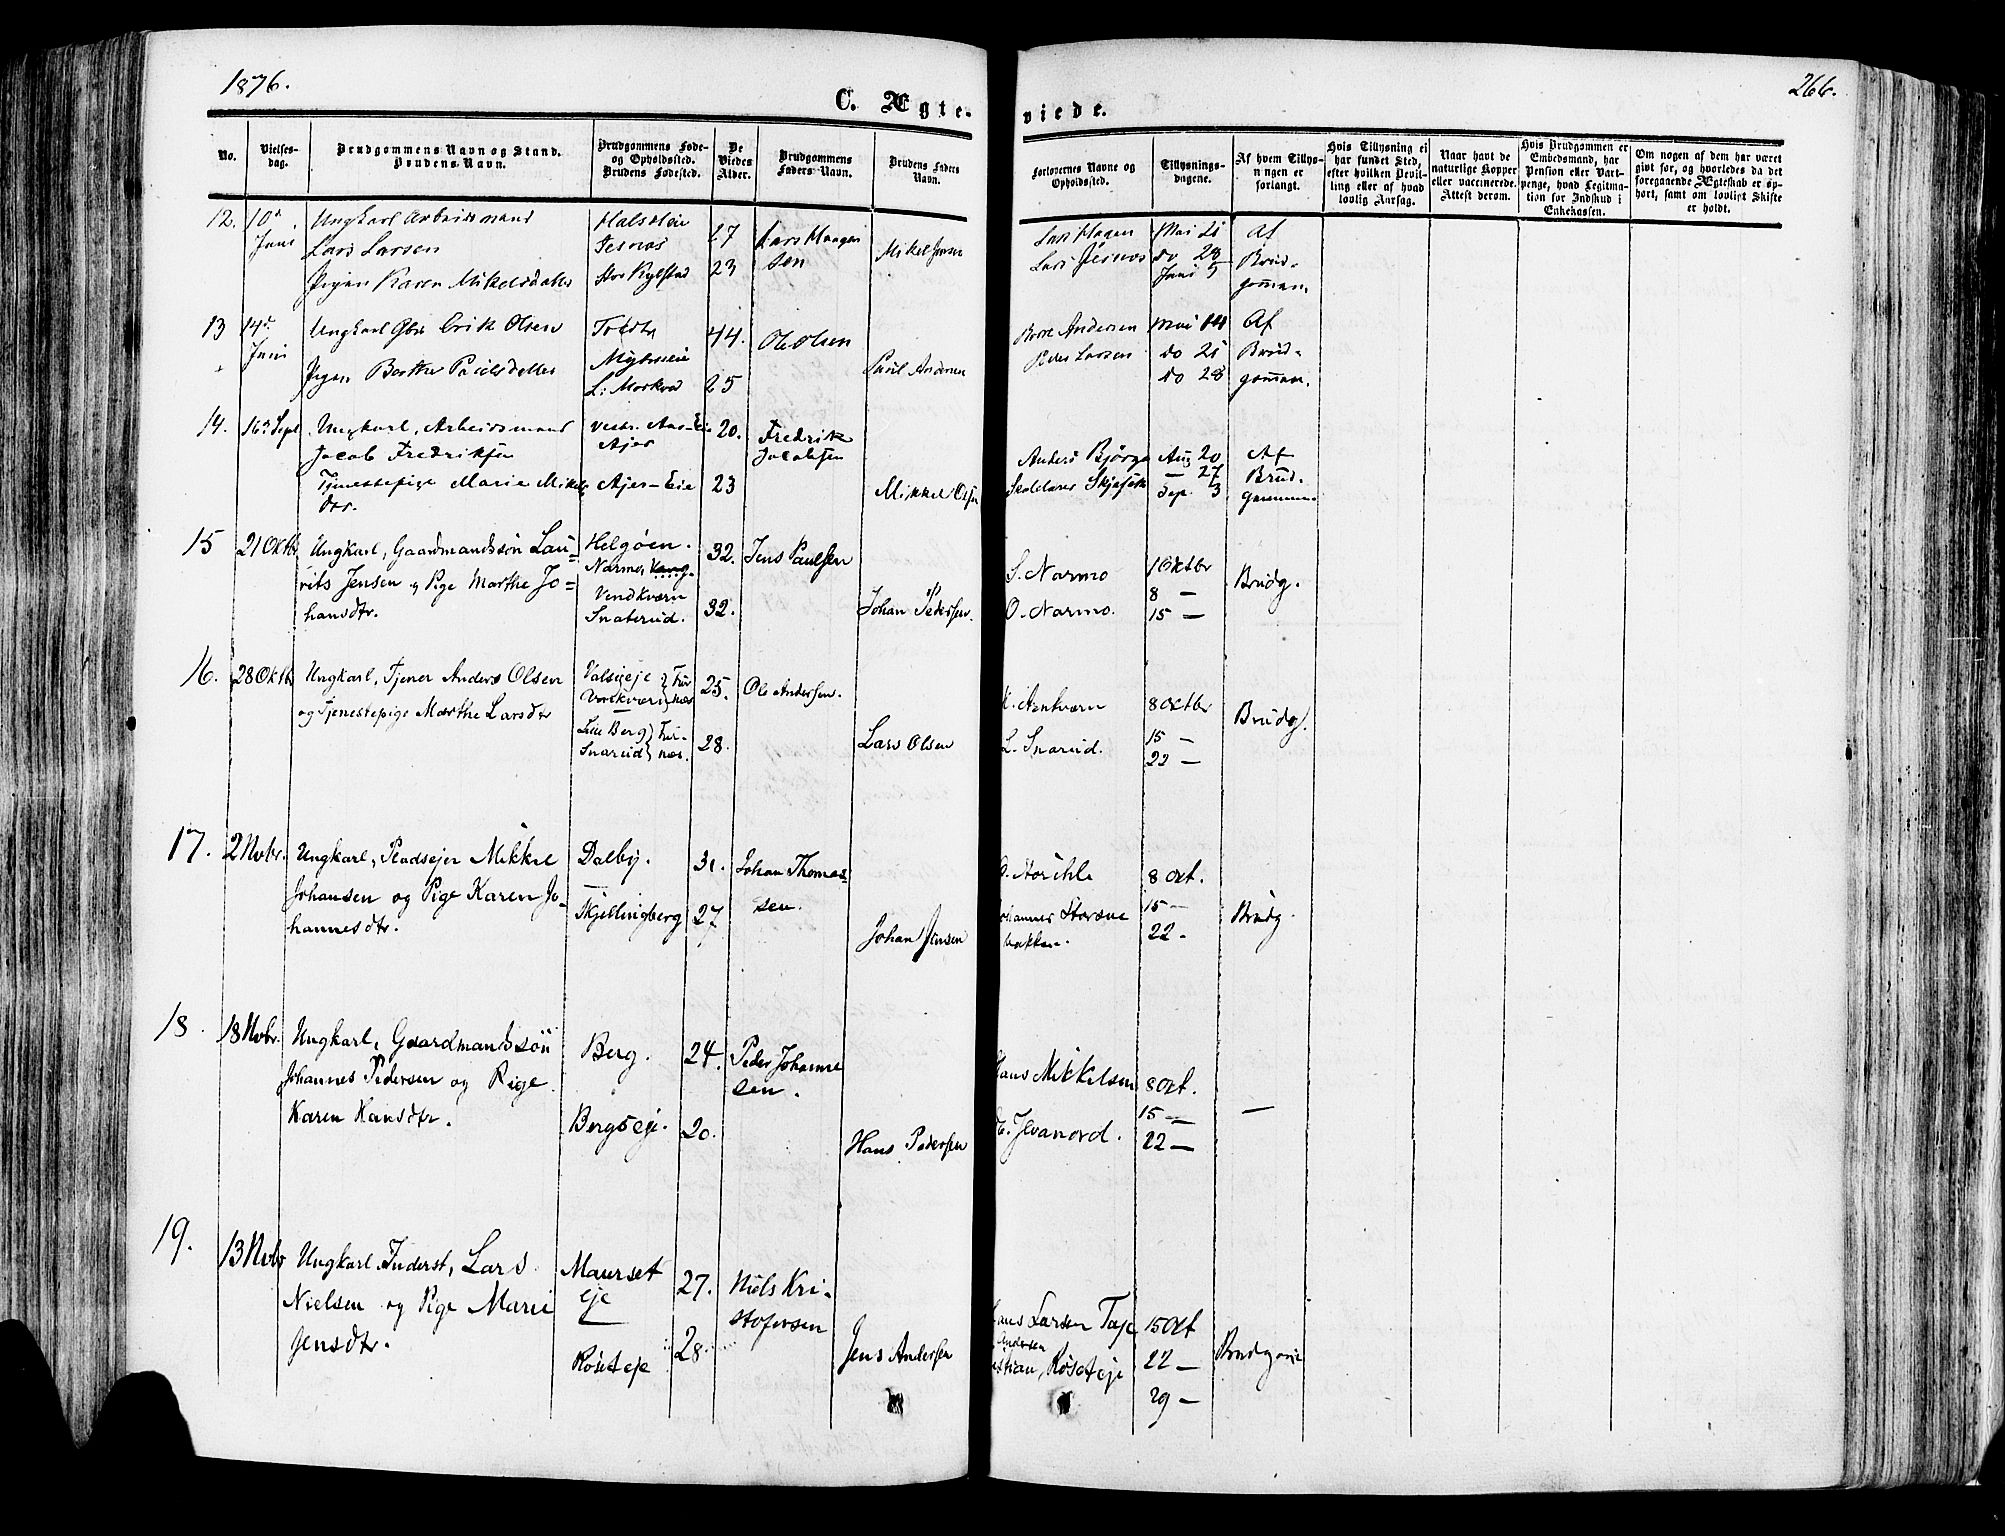 1876.
266.
C. Ægte-
viede.
No.
Vielses-
dag.
Brudgommens Navn og Stand.
Brudens Navn.
Brudgommens Føde-
og Opholdssted.
Brudens Fødested.
De
Viedes
Alder.
Brudgommens
Faders Navn.
Brudens Faders
Navn.
Forlovernes Navne og
Opholdssted.
Tillysnings-
dagene.
Af hvem Tillys-
ningen er
forlangt.
Hvis Tillysning ei
har fundet Sted,
efter hvilken Bevil-
ling eller af hvad
lovlig Aarsag.
Naar havt de
naturlige Kopper
eller vaccinerede.
Attest derom.
Hvis Brudgommen er
Embedsmand, har
Pension eller Vart-
penge, hvad Legitima-
tion for Indskud i
Enkekassen.
Om nogen af dem har været
givt før, og hvorledes da det
foregaaende Ægteskab er op-
hørt, samt om lovligt Skifte
er holdt.
12.
10de
Juni
Ungkarl Arbeidsmand
Lars Larsen
Pigen Karen Mikelsdatter
27
23
Lars Haagen
sen
Mikel Jensen
Lars Hagen
Mai 21
do 28
Juni 5
Af
Brud-
gommen.
13
14de
Juni
Ungkarl Gbr Erik Olsen
Pigen Berthe Paulsdatter
44.
25
Ole Olsen
Paul Andersen
Andersen
Peder Larsen
Mai 14
do 21
do 28
Af
Brud-
gommen.
14.
16de Sept
Ungkarl, Arbeidsmand
Jacob Fredriksen
Tjenestepige Marie Mikels
dtr.
Vestr. Aas-Eie
Ajer
Ajer-Eie
20.
23
Fredrik
Jacobsen
Mikkel Olsen
Anders Bjørge
Aug 20
— 27
Sep. 3
Af
Brud-
gommen
15
21 Oktbr
Ungkarl, Gaardmandssøn Lau-
rits Jensen og Pige Marthe Jo-
hansdtr.
Helgøen.
Narmo
Vendkværn
Snaterud.
32.
32.
Jens Paulsen
Johan Pedersen.
S. Narmo
O. Narmo.
1 Oktbr
8 —
15 —
Brudg.
16.
28 Oktb
Ungkarl, Tjener Anders Olsen
og Tjenestepige Marthe Larsdtr
Valseeje } Fur
} næs
Lille Berg } Fur-
Snarud } næs.
25.
28.
Ole Andersen.
Lars Olsen
L. Snarud.
8 octbr
15 —
22 —
Brudg.
17.
2 Novbr.
Ungkarl, Pladsejer Mikkel
Johansen og Pige Karen Jo-
hannesdtr.
Dalby.
Skjellingberg
31.
27
Johan Thomas-
sen.
Johan Jensen
8 Oct.
15 —
22 -
Brudg.
18.
18 Novbr.
Ungkarl, Gaardmandssøn
Johannes Pedersen og Pige
Karen Hansdtr.
Berg.
Bergseje.
24.
20.
Peder Johanne
sen.
Hans Pedersen
Hans Mikkelsen
Jevanord.
8 Oct.
15 —
22 —
—
19.
13 Novbr
Ungkarl Inderst, Lars
Nielsen og Pige Marie
Jensdtr.
Maurset
eje
Røseteje
27.
28.
Niels Kri-
stofersen
Jens Andersen
Hans Larsen Taje
Andersen
Røseteje
15 Oct
22 —
29 —